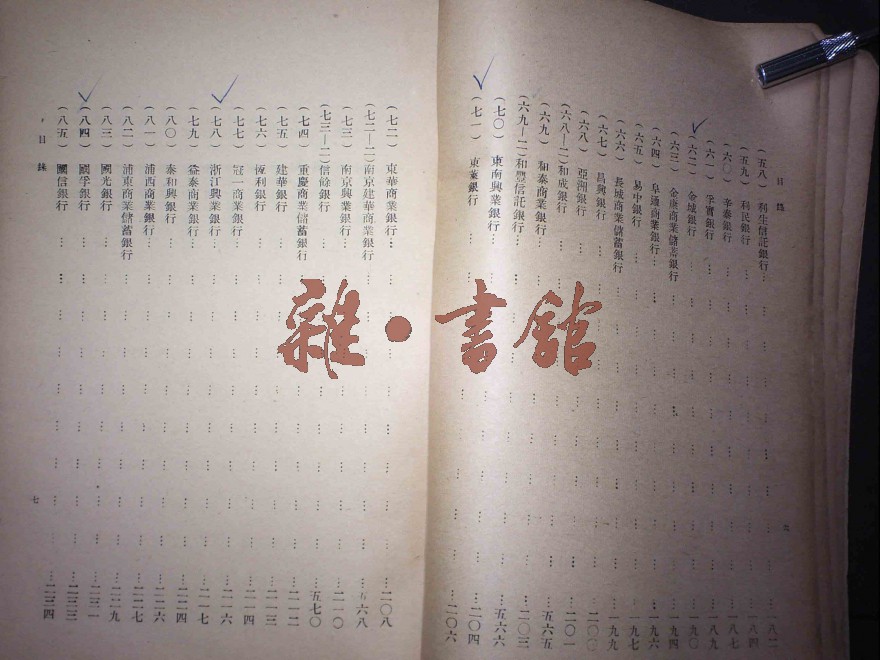 目錄
(五八) 利生信託銀行………一八二
(五九) 利民銀行………一八四
(六〇) 辛泰銀行………一八七
(六一) 孚實銀行………一八九
(六二) 金城銀行………一九〇
(六三) 金康商業儲蓄銀行………一九四
(六四) 阜通商業銀行………一九六
(六五) 易中銀行………一九七
(六六) 長城商業儲蓄銀行………一九九
(六七) 昌興銀行………二〇〇
(六八) 亞洲銀行………二〇一
(六八—二) 和成銀行
(六九) 和泰商業銀行………五六五
(六九—二) 和豐信託銀行………二〇三
(七〇) 東南興業銀行………五六六
(七一) 東萊銀行………二〇四
二〇六
(七二) 東華商業銀行………二〇八
(七二—二) 南京建華商業銀行………五六八
(七三) 南京興業銀行………二一〇
(七三—二) 信餘銀行………五七〇
(七四) 重慶商業儲蓄銀行………二一二
(七五) 建華銀行………二一三
(七六) 恆利銀行………二一四
(七七) 冠一商業銀行………二一六
(七八) 浙江興業銀行………二一七
(七九) 益泰商業銀行………二二四
(八〇) 泰和興銀行………二二六
(八一) 浦西商業銀行………二二七
(八二) 浦東商業儲蓄銀行………二二九
(八三) 國光銀行………二三一
(八四) 國孚銀行………二三三
(八五) 國信銀行………二三四
目錄
七
雜•書館